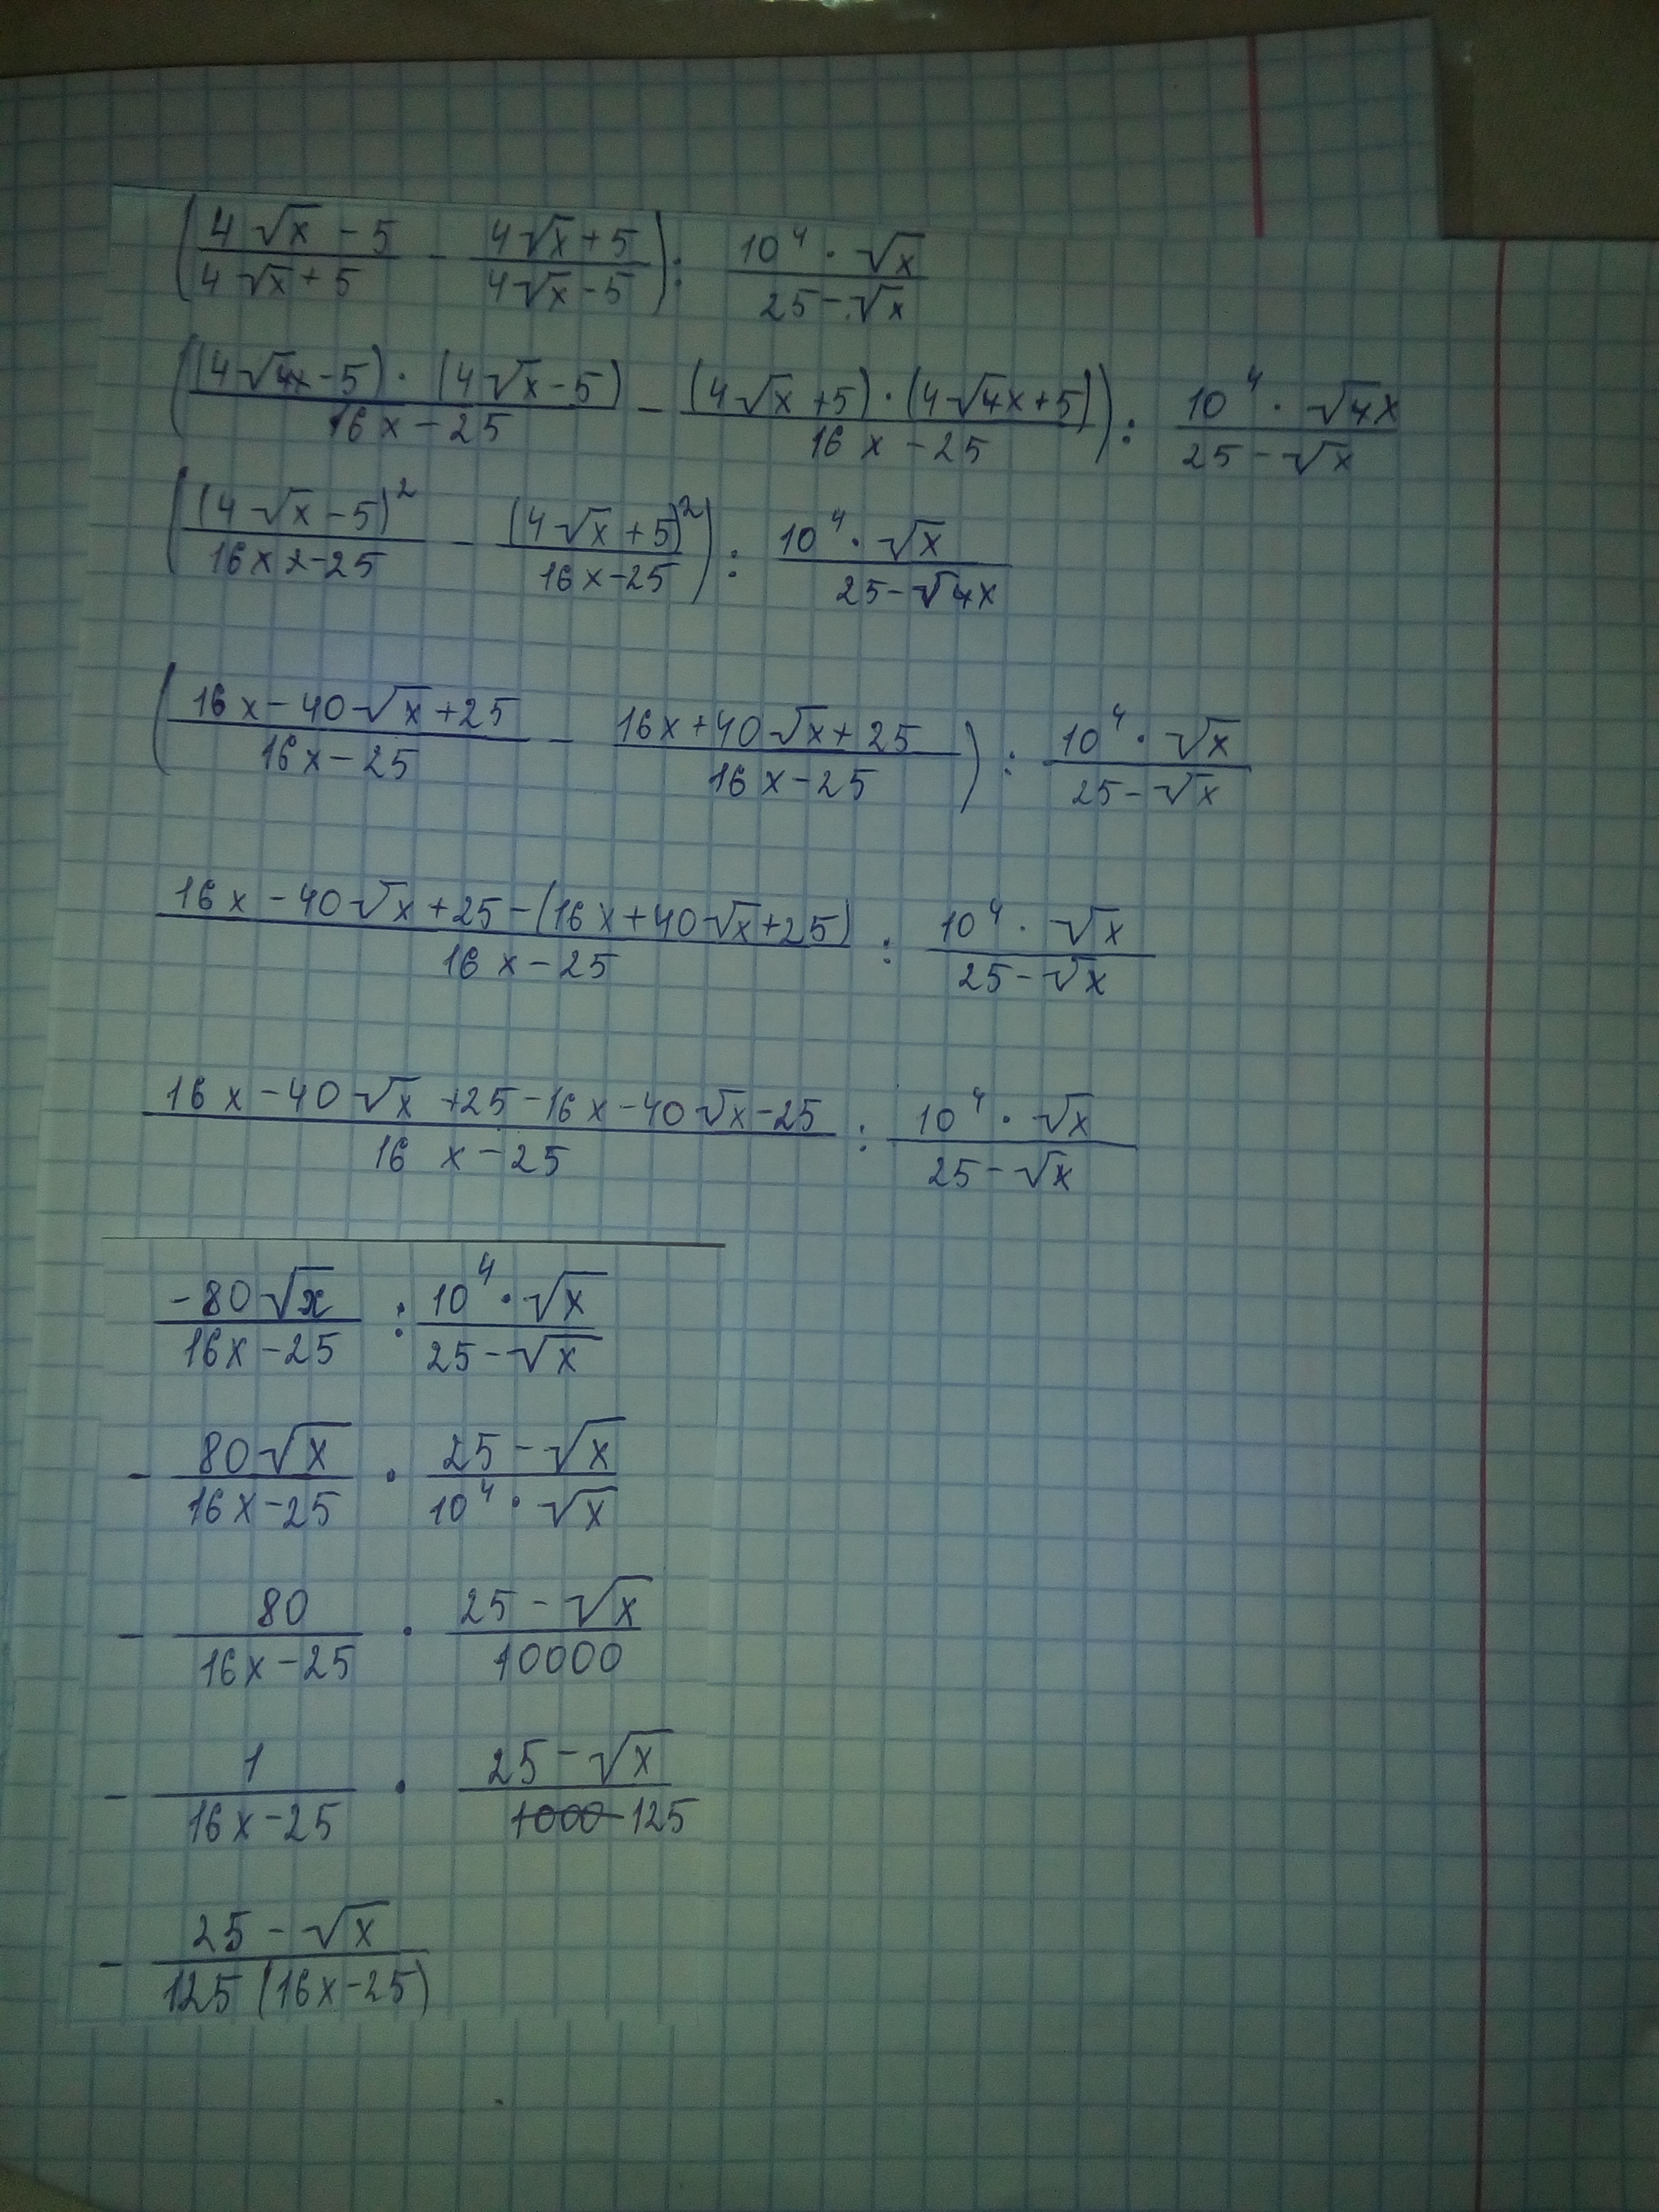 (4√x - 5 / 4√x + 5 - 4√x + 5 / 4√x - 5) : 10⁴ · √x / 25 - √x
((4√4x - 5) · (4√x - 5) / 16x - 25 - (4√x + 5) · (4√4x + 5) / 16x - 25) : 10⁴ · √4x / 25 - √x
((4√x - 5)² / 16x x - 25 - (4√x + 5)² / 16x - 25) : 10⁴ · √x / 25 - √4x
(16x - 40√x + 25 / 16x - 25 - 16x + 40√x + 25 / 16x - 25) : 10⁴ · √x / 25 - √x
16x - 40√x + 25 - (16x + 40√x + 25) / 16x - 25 : 10⁴ · √x / 25 - √x
16x - 40√x + 25 - 16x - 40√x - 25 / 16x - 25 : 10⁴ · √x / 25 - √x
-80√x / 16x - 25 : 10⁴ · √x / 25 - √x
- 80√x / 16x - 25 · 25 - √x / 10⁴ · √x
- 80 / 16x - 25 · 25 - √x / 10000
- 1 / 16x - 25 · 25 - √x / 1000 125
- 25 - √x / 125 (16x - 25)